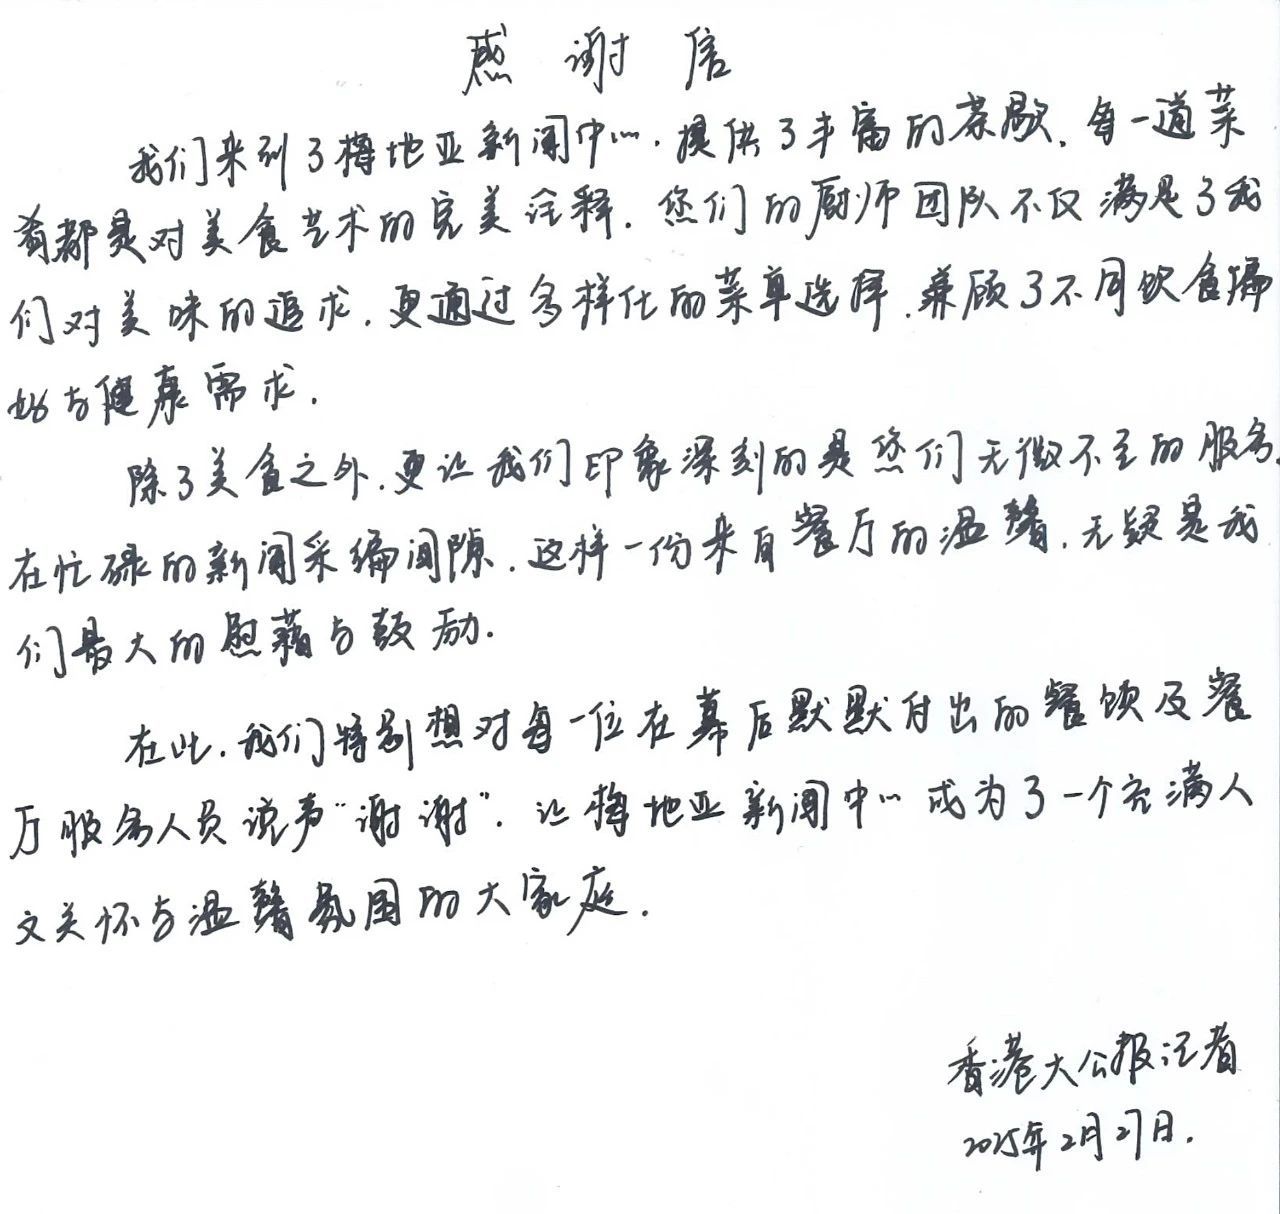 感谢信
我们来到了梅地亚新闻中心，提供了丰富的茶歇，每一道菜
肴都是对美食艺术的完美诠释。您们的厨师团队不仅满足了我
们对美味的追求，更通过多样化的菜单选择，兼顾了不同饮食偏
好与健康需求。
除了美食之外，更让我们印象深刻的是您们无微不至的服务，
在忙碌的新闻采编间隙，这样一份来自餐厅的温馨，无疑是我
们最大的慰藉与鼓励。
在此，我们特别想对每一位在幕后默默付出的餐饮及餐
厅服务人员说声“谢谢”。让梅地亚新闻中心成为了一个充满人
文关怀与温馨氛围的大家庭。
香港大公报记者
2025年2月27日。